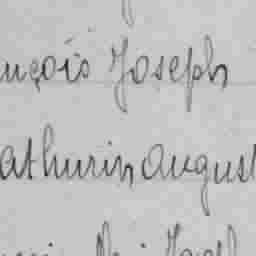 nçois Joseph
athurin august